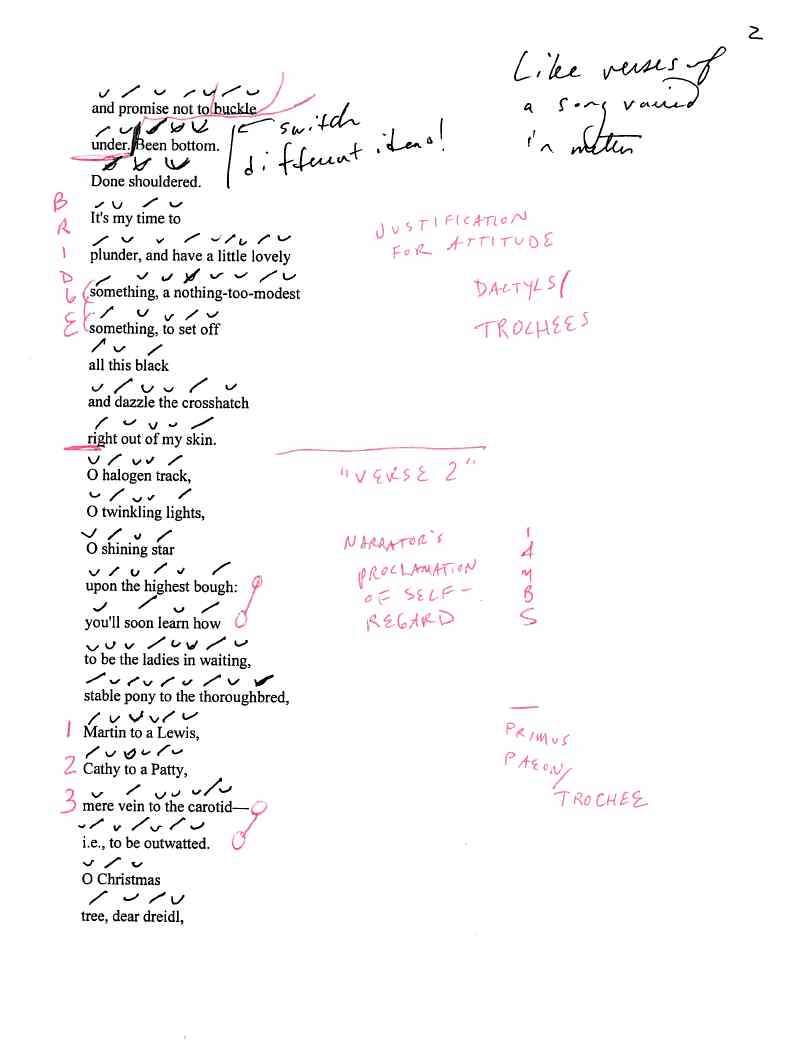 2
Like verses of
a song varied
in meter
and promise not to buckle
switch
under. Been bottom.
different ideas!
Done shouldered.
BRIDGE
It's my time to
JUSTIFICATION
FOR ATTITUDE
plunder, and have a little lovely
something, a nothing-too-modest
DACTYLS/
something, to set off
TROCHEES
all this black
and dazzle the crosshatch
right out of my skin.
O halogen track,
"VERSE 2"
O twinkling lights,
O shining star
NARRATOR'S
PROCLAMATION
OF SELF-
REGARD
IAMBS
upon the highest bough:
you'll soon learn how
to be the ladies in waiting,
stable pony to the thoroughbred,
1 Martin to a Lewis,
PRIMUS
PAEON/
TROCHEE
2 Cathy to a Patty,
3 mere vein to the carotid—
i.e., to be outwatted.
O Christmas
tree, dear dreidl,